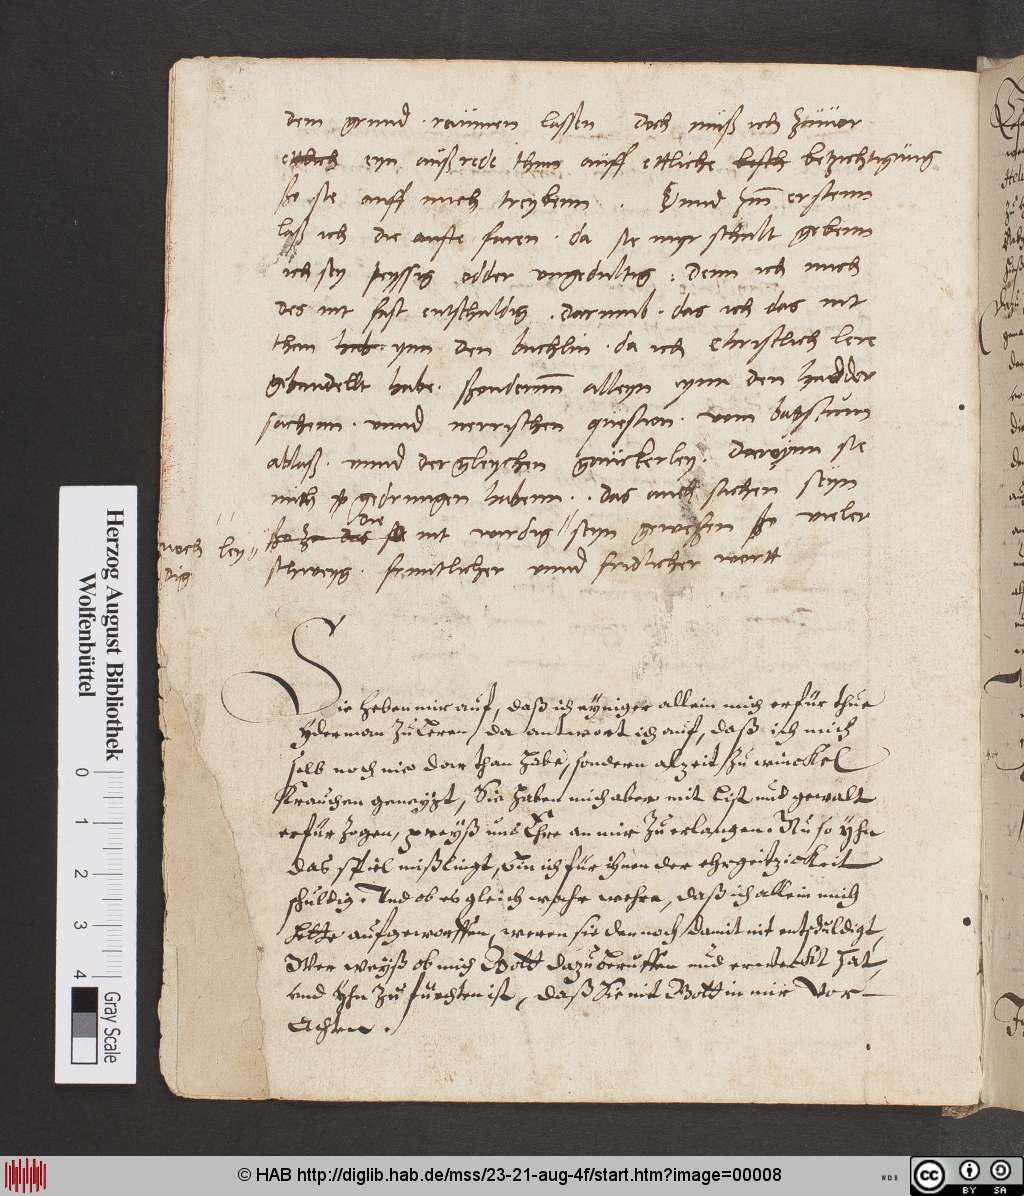 dem grund reümen lassen doch müß ich züuor
ettlich eyn außrede thun auff ettliche besch betzichtigüng
ßo sie auff mich treybenn . Vnnd zum erstenn
laß ich die anste faren . da sie myr schult gebenn
ich sey peyssig odder ungedultig : denn ich mich
des nit fast entschuldig . darumb . das ich das nit
than habe ynn den buchlin . da ich Christlich lere
gehandellt habe . ßonndernn alleyn ynn den hadder
sachenn . unnd nerrischen question . vom babstum
ablaß . unnd dergleychen gauckerley . daroynn sie
mich gedrungen habenn . das auch sachen seyn
die
ßo das nit wirdig seyn geweßen ßo vieler
noch ley
dig
schweyg . fruntlicher unnd fridlicher wortt
Sie heben mir auf, daß ich eyniger allein mich erfür thue
yderman zu Leren, da antwort ich auf, daß ich mich
selb noch nie dar than habe, sondern alzeit zu winckel
krauchen geneyzt, Sie haben mich aber mit list und gewalt
erfür zogen, preyß und Ehre an mir zu erlangen. Nu so yhn
das spiel mißlingt, bin ich für ihnen der ehrgeitzickeit
schuldig. Und ob es gleich wahr wehre, daß ich allein mich
hette aufgeworffen, weren sie dennoch damit nit entschuldigt,
Wer weyß ob mich Gott dazu beruffen und erweckt hat,
und yhn zu furchten ist, daß Sie nit Gott in mir Vor-
Achten.
Herzog August Bibliothek
Wolfenbüttel
0 1 2 3 4
Gray Scale
© HAB http://diglib.hab.de/mss/23-21-aug-4f/start.htm?image=00008
WDB
cc BY SA